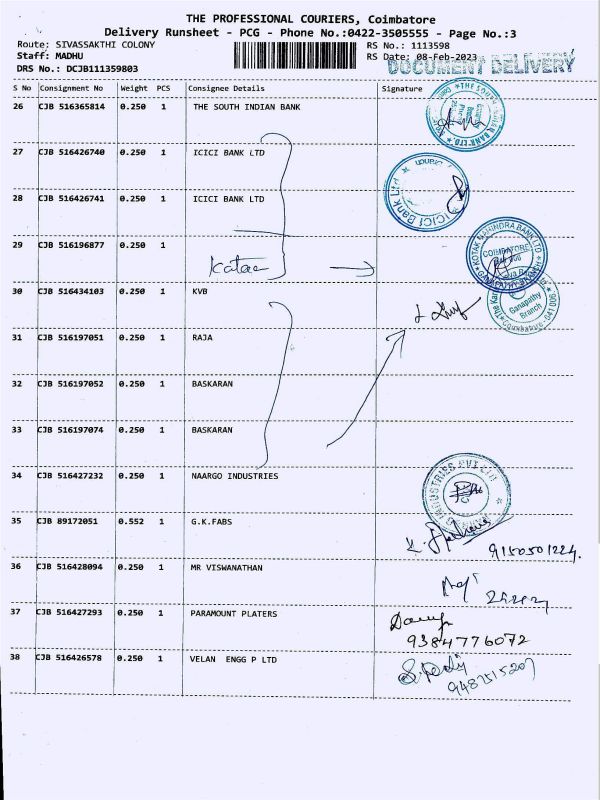 THE PROFESSIONAL COURIERS, Coimbatore
Delivery Runsheet - PCG - Phone No.:0422-3505555 - Page No.:3
Route: SIVASSAKTHI COLONY RS No.: 1113598
Staff: MADHU RS Date: 08-Feb-2023
DRS No.: DCJB111359803 DOCUMENT DELIVERY
S No Consignment No Weight PCS Consignee Details Signature
26 CJB 516365814 0.250 1 THE SOUTH INDIAN BANK
27 CJB 516426740 0.250 1 ICICI BANK LTD
28 CJB 516426741 0.250 1 ICICI BANK LTD
ICICI Bank Ltd
29 CJB 516196877 0.250 1
KOTAK MAHINDRA BANK LTD
COIMBATORE
GANAPATHY BRANCH
30 CJB 516434103 0.250 1 KVB
Ganapathy
Branch
Coimbatore - 641 006
31 CJB 516197051 0.250 1 RAJA
32 CJB 516197052 0.250 1 BASKARAN
33 CJB 516197074 0.250 1 BASKARAN
34 CJB 516427232 0.250 1 NAARGO INDUSTRIES
INDUSTRIES PVT LTD
35 CJB 89172051 0.552 1 G.K.FABS
9150501224.
36 CJB 516428094 0.250 1 MR VISWANATHAN
37 CJB 516427293 0.250 1 PARAMOUNT PLATERS
9384776072
38 CJB 516426578 0.250 1 VELAN ENGG P LTD